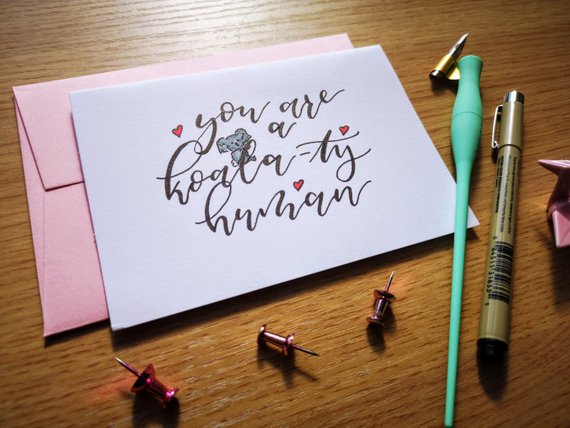 you are
a
koala-ty
human